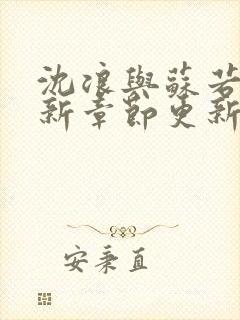 沈浪與蘇若
新章節更新
安秉直